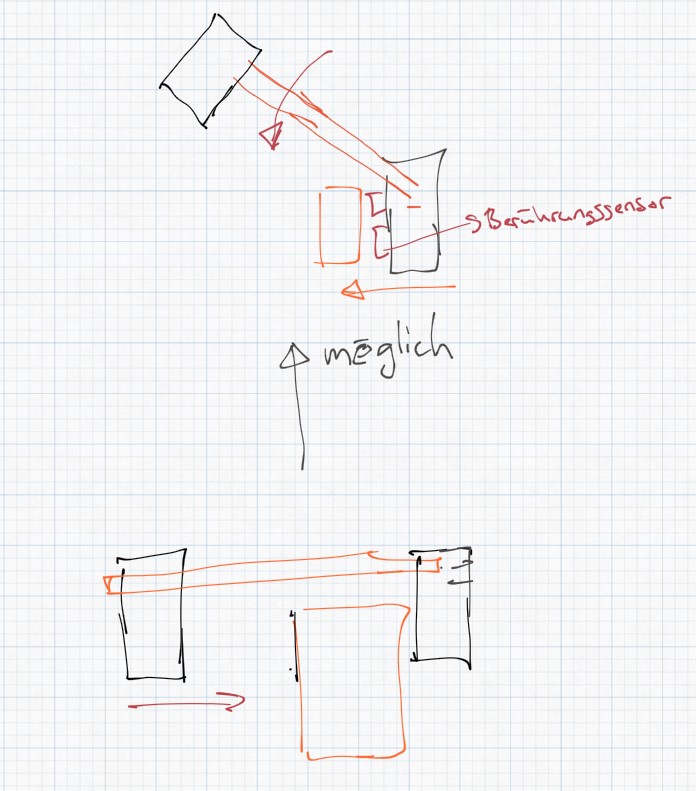 Berührungssensor
möglich